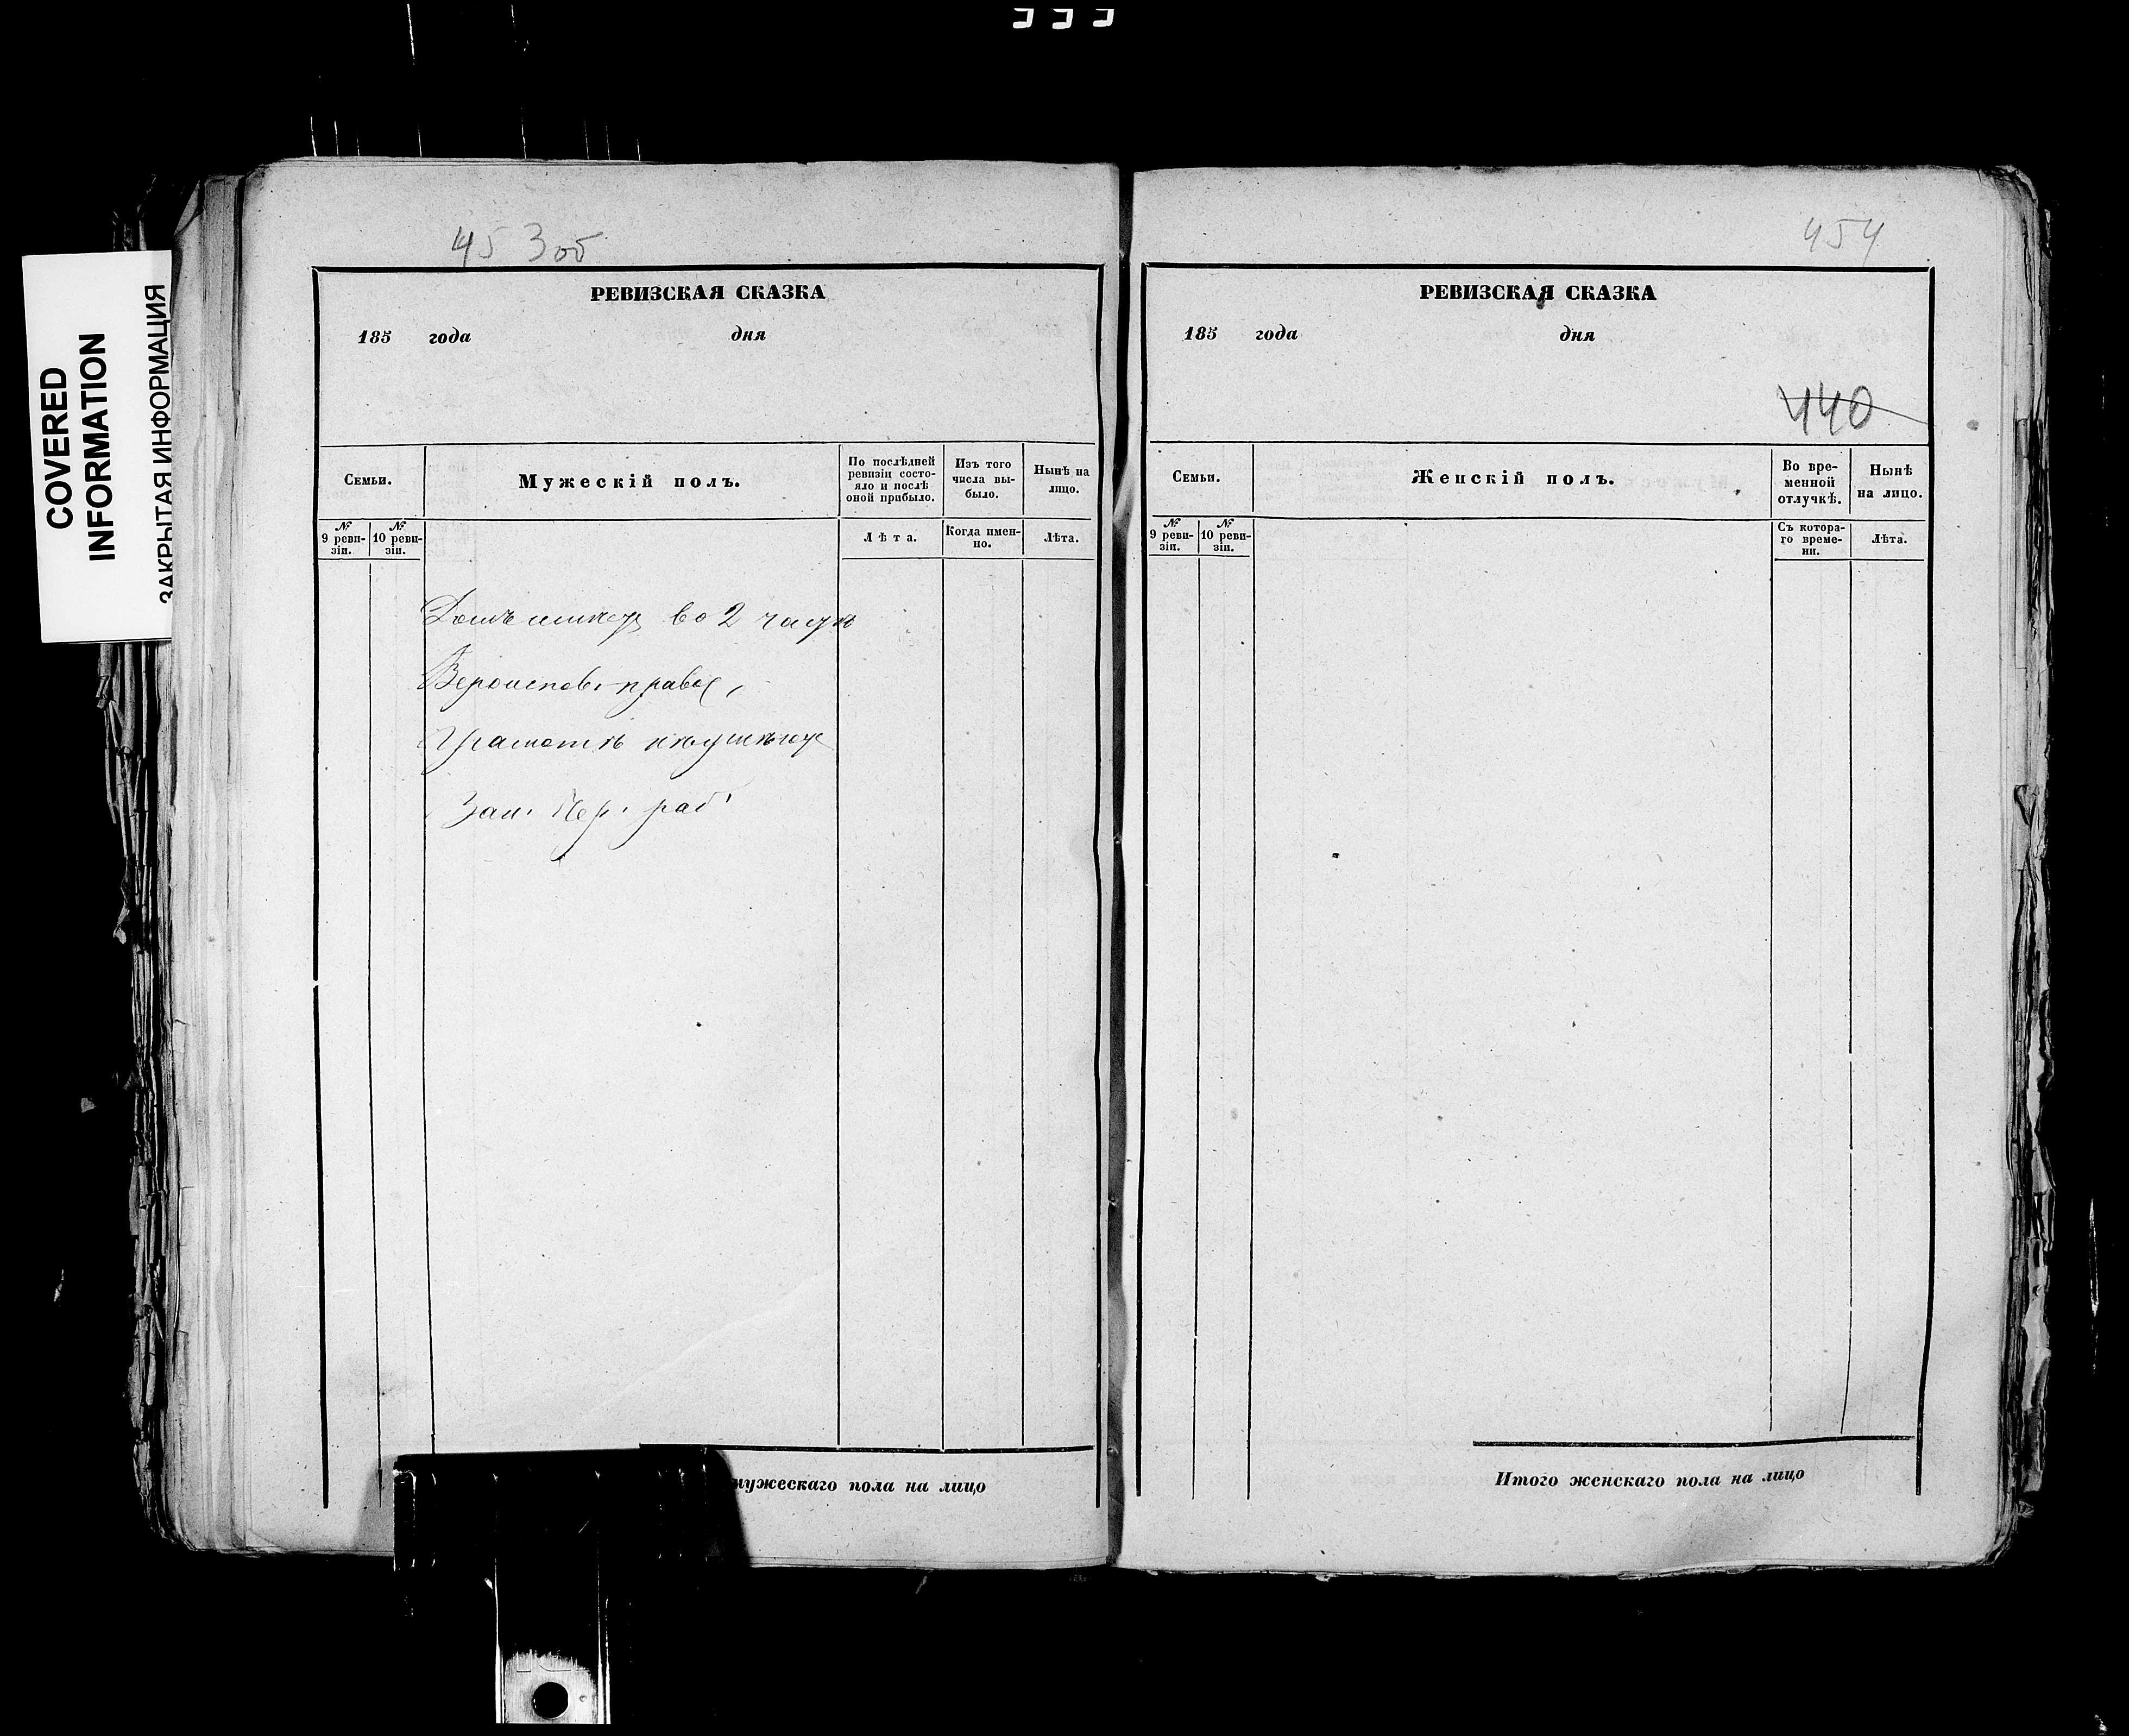 COVERED
INFORMATION
ЗАКРЫТАЯ ИНФОРМАЦИЯ
453об
РЕВИЗСКАЯ СКАЗКА
185 года дня
Семьи.
Мужескій полъ.
По послѣдней
ревизіи состо-
яло и послѣ
оной прибыло.
Изъ того
числа вы-
было.
Нынѣ на
лицо.
№
9 реви-
зіи.
№
10 реви-
зіи.
Лѣта.
Когда имен-
но.
Лѣта.
во 2
Вероиспов. правос,
Грамотѣ
Зан. Чер. раб
мужескаго пола на лицо
454
РЕВИЗСКАЯ СКАЗКА
185 года дня
440
Семьи.
Женскій полъ.
Во вре-
менной
отлучкѣ.
Нынѣ
на лицо.
№
9 реви-
зіи.
№
10 реви-
зіи.
Съ котора-
го време-
ни.
Лѣта.
Итого женскаго пола на лицо